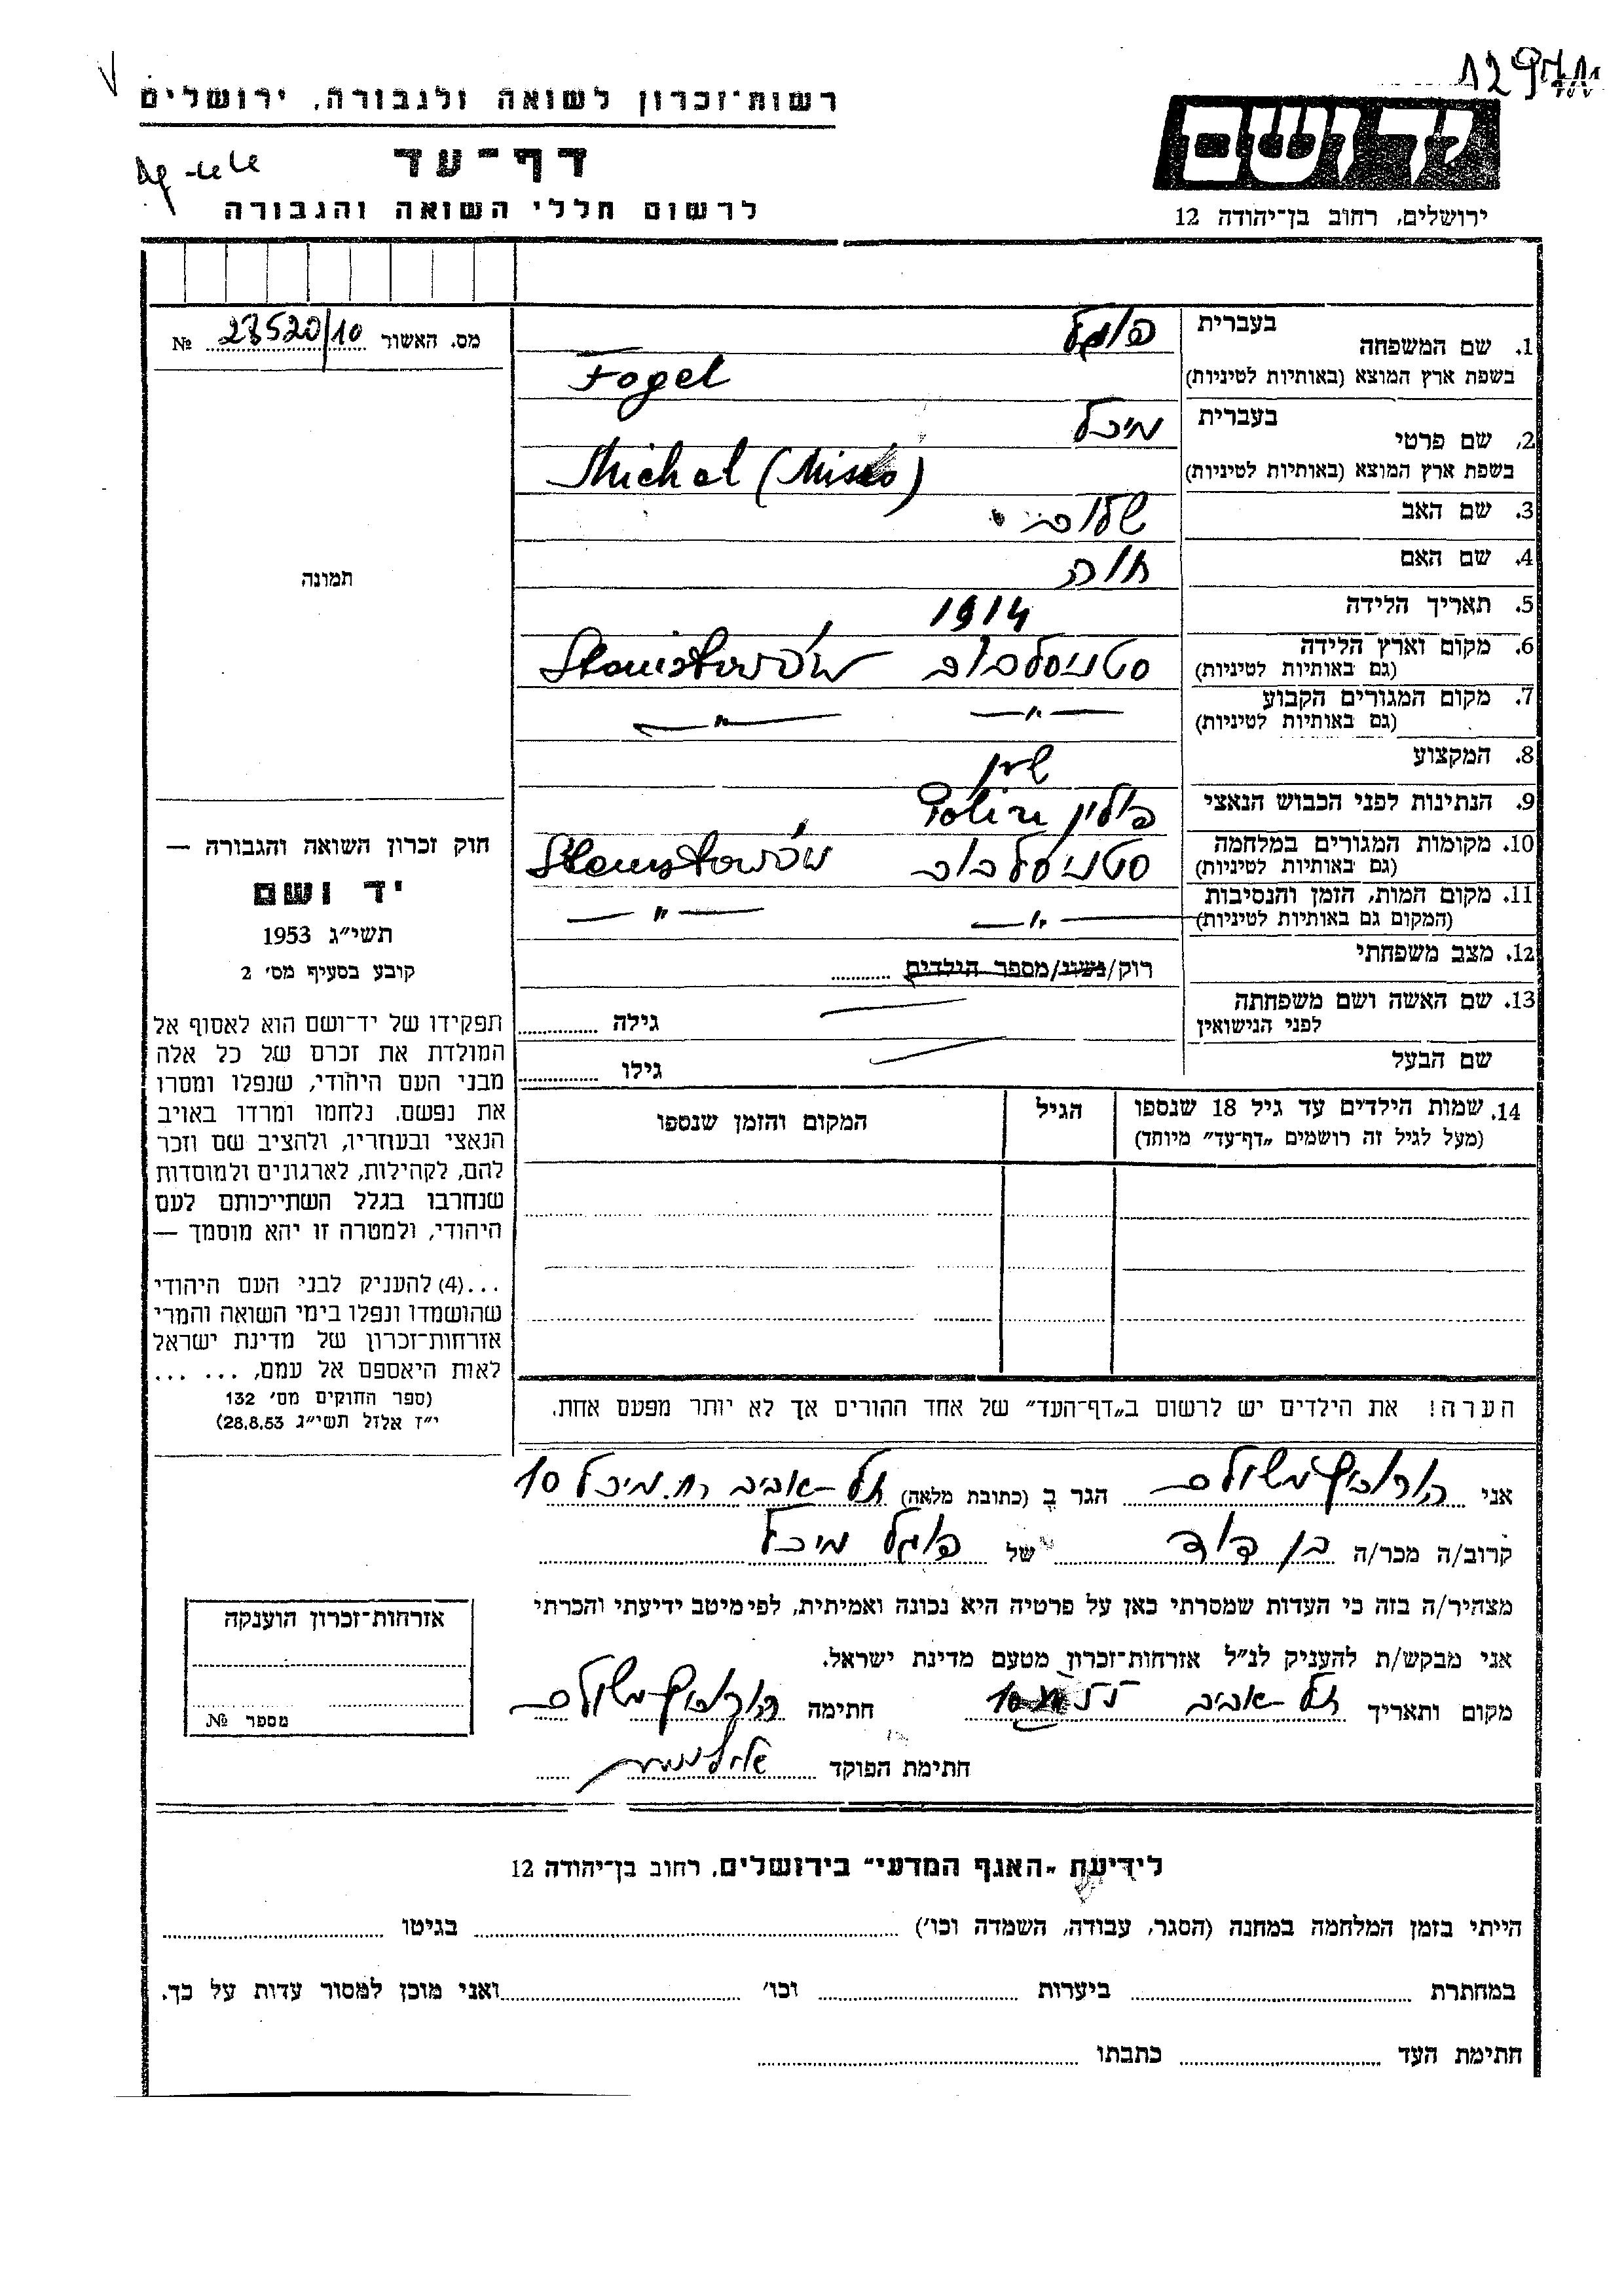 רשות־זכרון לשואה ולגבורה, ירושלים
דף־עד
לרשום חללי השואה והגבורה
יד ושם
ירושלים, רחוב בן־יהודה 12
מס. האשור 23520/10 №
1. שם המשפחה
בעברית פוגל
בשפת ארץ המוצא (באותיות לטיניות) Fogel
2. שם פרטי
בעברית מיכל
בשפת ארץ המוצא (באותיות לטיניות) Michel
3. שם האב
4. שם האם חוה
5. תאריך הלידה 1914
6. מקום וארץ הלידה סטניסלבוב Stanisławów
(גם באותיות לטיניות)
7. מקום המגורים הקבוע — " — — " —
(גם באותיות לטיניות)
8. המקצוע
9. הנתינות לפני הכבוש הנאצי פולין
10. מקומות המגורים במלחמה סטניסלבוב Stanisławów
(גם באותיות לטיניות)
11. מקום המות, הזמן והנסיבות — " — — " —
(המקום גם באותיות לטיניות)
12. מצב משפחתי רוק/נשוי/מספר הילדים
13. שם האשה ושם משפחתה גילה
לפני הנישואין
שם הבעל גילו
14. שמות הילדים עד גיל 18 שנספו הגיל המקום והזמן שנספו
(מעל לגיל זה רושמים „דף־עד" מיוחד)
תמונה
חוק זכרון השואה והגבורה —
יד ושם
תשי״ג 1953
קובע בסעיף מס׳ 2
תפקידו של יד־ושם הוא לאסוף אל
המולדת את זכרם של כל אלה
מבני העם היהודי, שנפלו ומסרו
את נפשם, נלחמו ומרדו באויב
הנאצי ובעוזריו, ולהציב שם וזכר
להם, לקהילות, לארגונים ולמוסדות
שנחרבו בגלל השתייכותם לעם
היהודי, ולמטרה זו יהא מוסמך —
...(4) להעניק לבני העם היהודי
שהושמדו ונפלו בימי השואה והמרי
אזרחות־זכרון של מדינת ישראל
לאות היאספם אל עמם, ... ...
(ספר החוקים מס׳ 132
י״ז אלול תשי״ג 28.8.53)
הערה! את הילדים יש לרשום ב„דף־העד" של אחד ההורים אך לא יותר מפעם אחת.
אני הורוביץ משולם הגר ב (כתובת מלאה) תל־אביב רח. מיכל 10
קרוב/ה מכר/ה בן דוד של פוגל מיכל
מצהיר/ה בזה כי העדות שמסרתי כאן על פרטיה היא נכונה ואמיתית, לפי מיטב ידיעתי והכרתי
אני מבקש/ת להעניק לנ״ל אזרחות־זכרון מטעם מדינת ישראל.
מקום ותאריך תל־אביב חתימה הורוביץ משולם
חתימת הפוקד
אזרחות־זכרון הוענקה
מספר №
לידיעת „האגף המדעי" בירושלים, רחוב בן־יהודה 12
הייתי בזמן המלחמה במחנה (הסגר, עבודה, השמדה וכו׳) בגיטו
במחתרת ביערות וכו׳ ואני מוכן למסור עדות על כך.
חתימת העד כתבתו